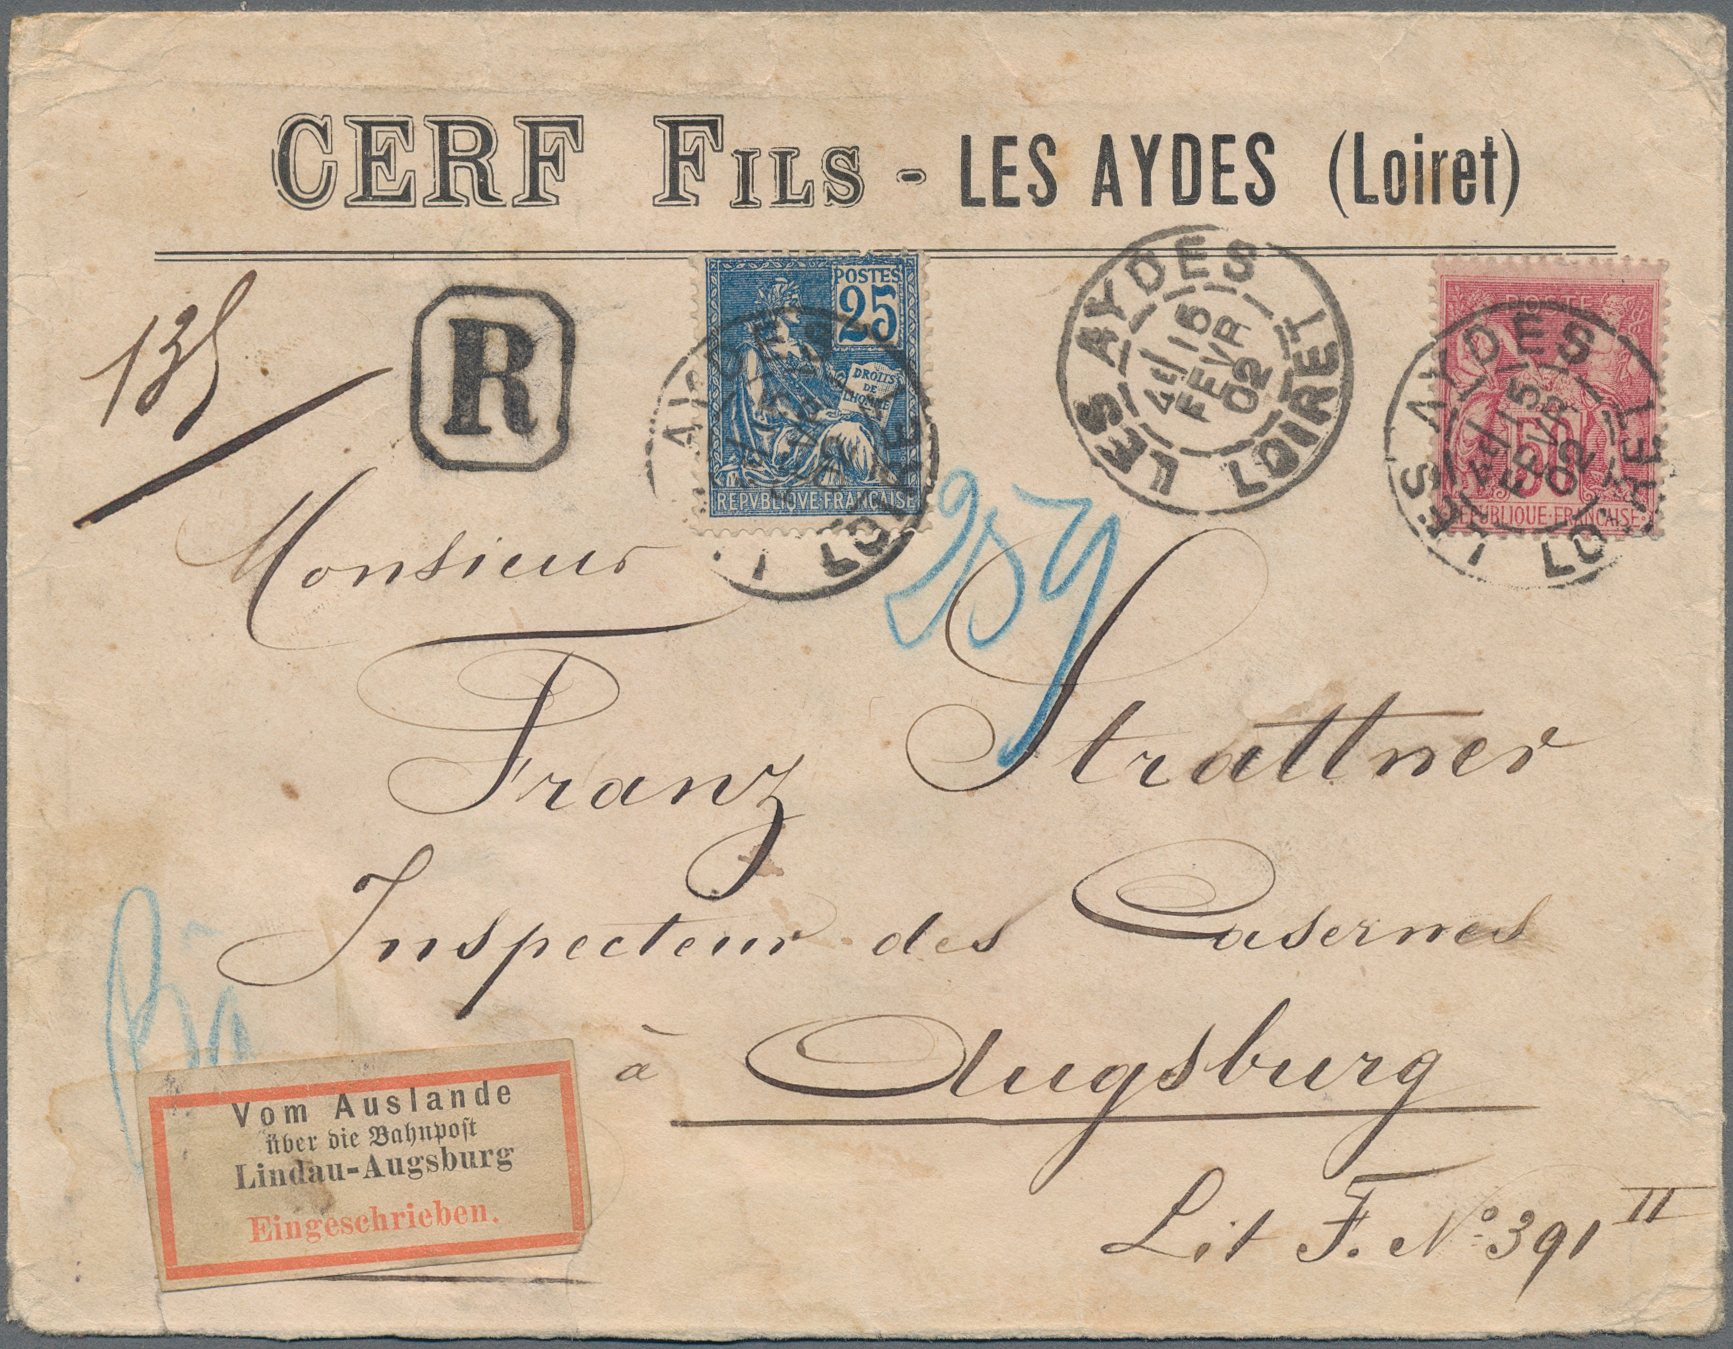 CERF FILS - LES AYDES (Loiret)
135
R
POSTES
25
DROITS
DE
L'HOMME
REPVBLIQVE FRANÇAISE
LES AYDES
4E/15
FEVR
02
LOIRET
REPUBLIQUE FRANÇAISE
LES AYDES
FEVR
02
LOIRET
259
Monsieur
Franz Strattner
Inspecteur des Casernes
à Augsburg
Lit F. No 391 II
Vom Auslande
über die Bahnpost
Lindau-Augsburg
Eingeschrieben.